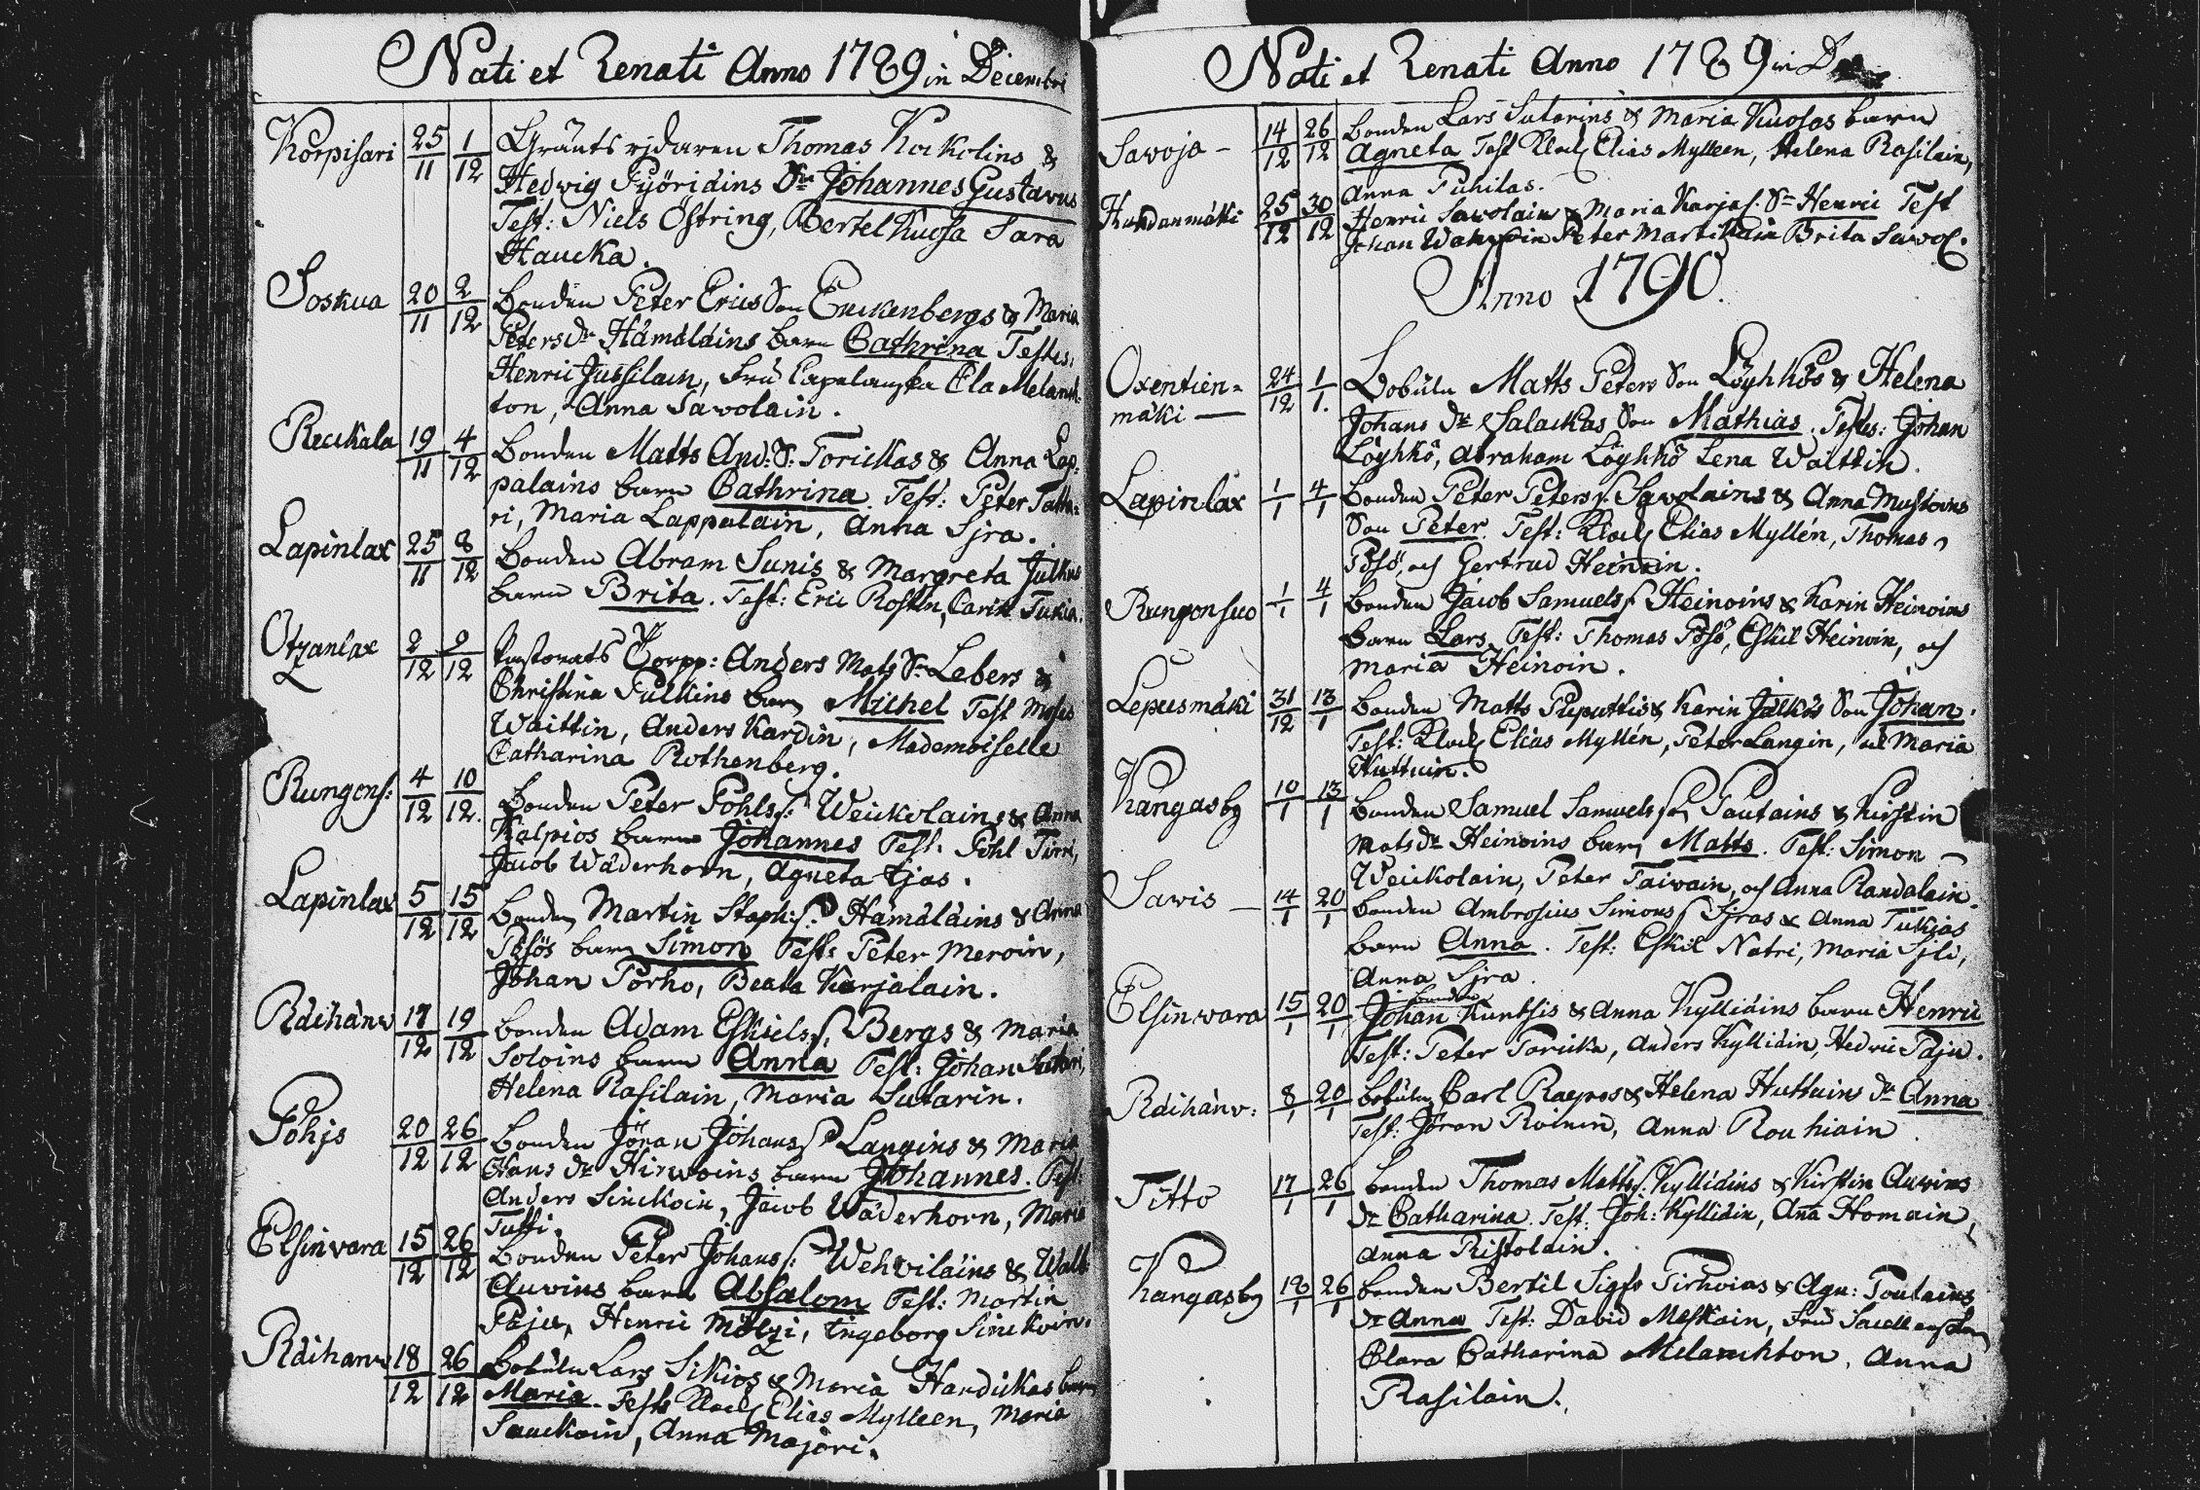 Nati et Renati Anno 1789 in Decembri
Korpisari 25/11 1/12 Gränts rjdaren Thomas Kockolins &
Hedwig Pyöriäins Sn Johannes Gustavus
Test: Niels Östring, Bertel Kuosa Sara
Haucka.
Soskua 20/11 2/12 Bonden Peter Erics Son Enckenbergs & Maria
Petersdr Hämäläins barn Cathrina Testes.
Henric Jussilain, Fru Capalanska Ela Melanch
ton, Anna Savolain.
Reuckala 19/11 4/12 Bonden Matts And: S: Torickas & Anna Lap:
palains barn Cathrina. Test: Peter Tatta:
ri, Maria Lappalain, Anna Sjra.
Lapinlax 25/11 8/12 Bonden Abram Sunis & Margreta Julkus
barn Brita. Test: Eric Rosten, Carin Tukia.
Otzanlax 2/12 9/12 Pastorats Torpp: Anders Mats Sn Lebers &
Christina Pulkins barn Michel Test Moses
Waittin, Anders Kardin, Mademoiselle
Catharina Rothenberg.
Rungons: 4/12 10/12 Bonden Peter Pohls s: Weickolains & Anna
Kalpios barn Johannes Test. Pohl Pirri,
Jacob Wäderhorn, Agneta Ejas.
Lapinlax 5/12 15/12 Bonden Martin Staph: s: Hämäläins & Anna
Pösös barn Simon Test: Peter Meroin,
Johan Porho, Beata Karjalain.
Räihänw 17/12 19/12 Bonden Adam Eskiels s: Bergs & Maria
Soloins barn Anna Test: Johan Sutari,
Helena Rasilain, Maria Sutarin.
Pohjs 20/12 26/12 Bonden Jöran Johans s: Langins & Maria
Hans dr Hirwoins barn Johannes. Test:
Anders Sinckoin, Jacob Wäderhorn, Maria
Tussi.
Elsinvara 15/12 26/12 Bonden Peter Johans s: Wehviläins & Walb:
Auvins barn Absalom Test: Martin
Paju, Henric Mölzi, Engeborg Sinckoin.
Räihänw 18/12 26/12 Lobulu Lars Sikios & Maria Handickas barn
Maria. Test: Klock Elias Mylleen, Maria
Sauckoin, Anna Majori.
Nati et Renati Anno 1789 in
Savojo 14/12 26/12 Bonden Lars Sutarins & Maria Kuosas barn
Agneta Test Klock Elias Mylleen, Helena Rasilain,
Anna Puhilas.
Huhdanmäki 25/12 30/12 Henric Savolains & Maria Karjas. Sn Henric Test
Johan Peter Martikain Brita Savol.
Anno 1790.
Oxentien=
mäki 24/12 1/1. Lobulu Matts Peters Son Löyhkös & Helena
Johans dr Salackas Son Mathias. Testes: Johan
Löyhkö, Abraham Löyhkö Lena Waittin.
Lapinlax 1/1 4/1 Bonden Peter Peters s. Savolains & Anna Mustoins
Son Peter. Test: Klock Elias Myllén, Thomas
Pösö, och Gertrud Heinoin.
Rungonsuo 1/1 4/1 Bonden Jacob Samuels s Heinoins & Karin Heinoins
barn Lars. Test: Thomas Pösö, Eskil Heinoin, och
Maria Heinoin.
Lepusmäki 31/12 13/1 Bonden Matts Puputtis & Karin Jälkös Son Johan.
Test: Klock Elias Myllén, Peter Langin, och Maria
Huttuin.
Kangasby 10/1 13/1 Bonden Samuel Samuels s: Tautains & Kirstin
Mats dr Heinoins barn Matts. Test: Simon
Weickolain, Peter Taivain, och Anna Randalain.
Savis 14/1 20/1 Bonden Ambrosius Simons s Sjras & Anna Tukias
barn Anna. Test: Eskil Natri, Maria Sjli,
Anna Sjra.
Elsinvara 15/1 20/1 Bonden Johan Kuntsis & Anna Kylliäins barn Henric
Test: Peter Toricka, Anders Kylliäin, Hedvic Paju.
Räihänv: 8/1 20/1 Lobulu Carl Raepos & Helena Huttuins dr Anna
Test: Jöran Roinin, Anna Rouhiain.
Titto 17/1 26/1 Bonden Thomas Matts s. Kylliäins & Kirstin Auvins
dr Catharina. Test. Joh: Kylliäin, Aña Homain,
Anna Ristolain.
Kangasby 18/1 26/1 Bonden Bertil Sigfs Pirhoias & Agn: Toutains
dr Anna Test: David Meskain, Fru
Clara Catharina Melanchton, Anna
Rasilain.